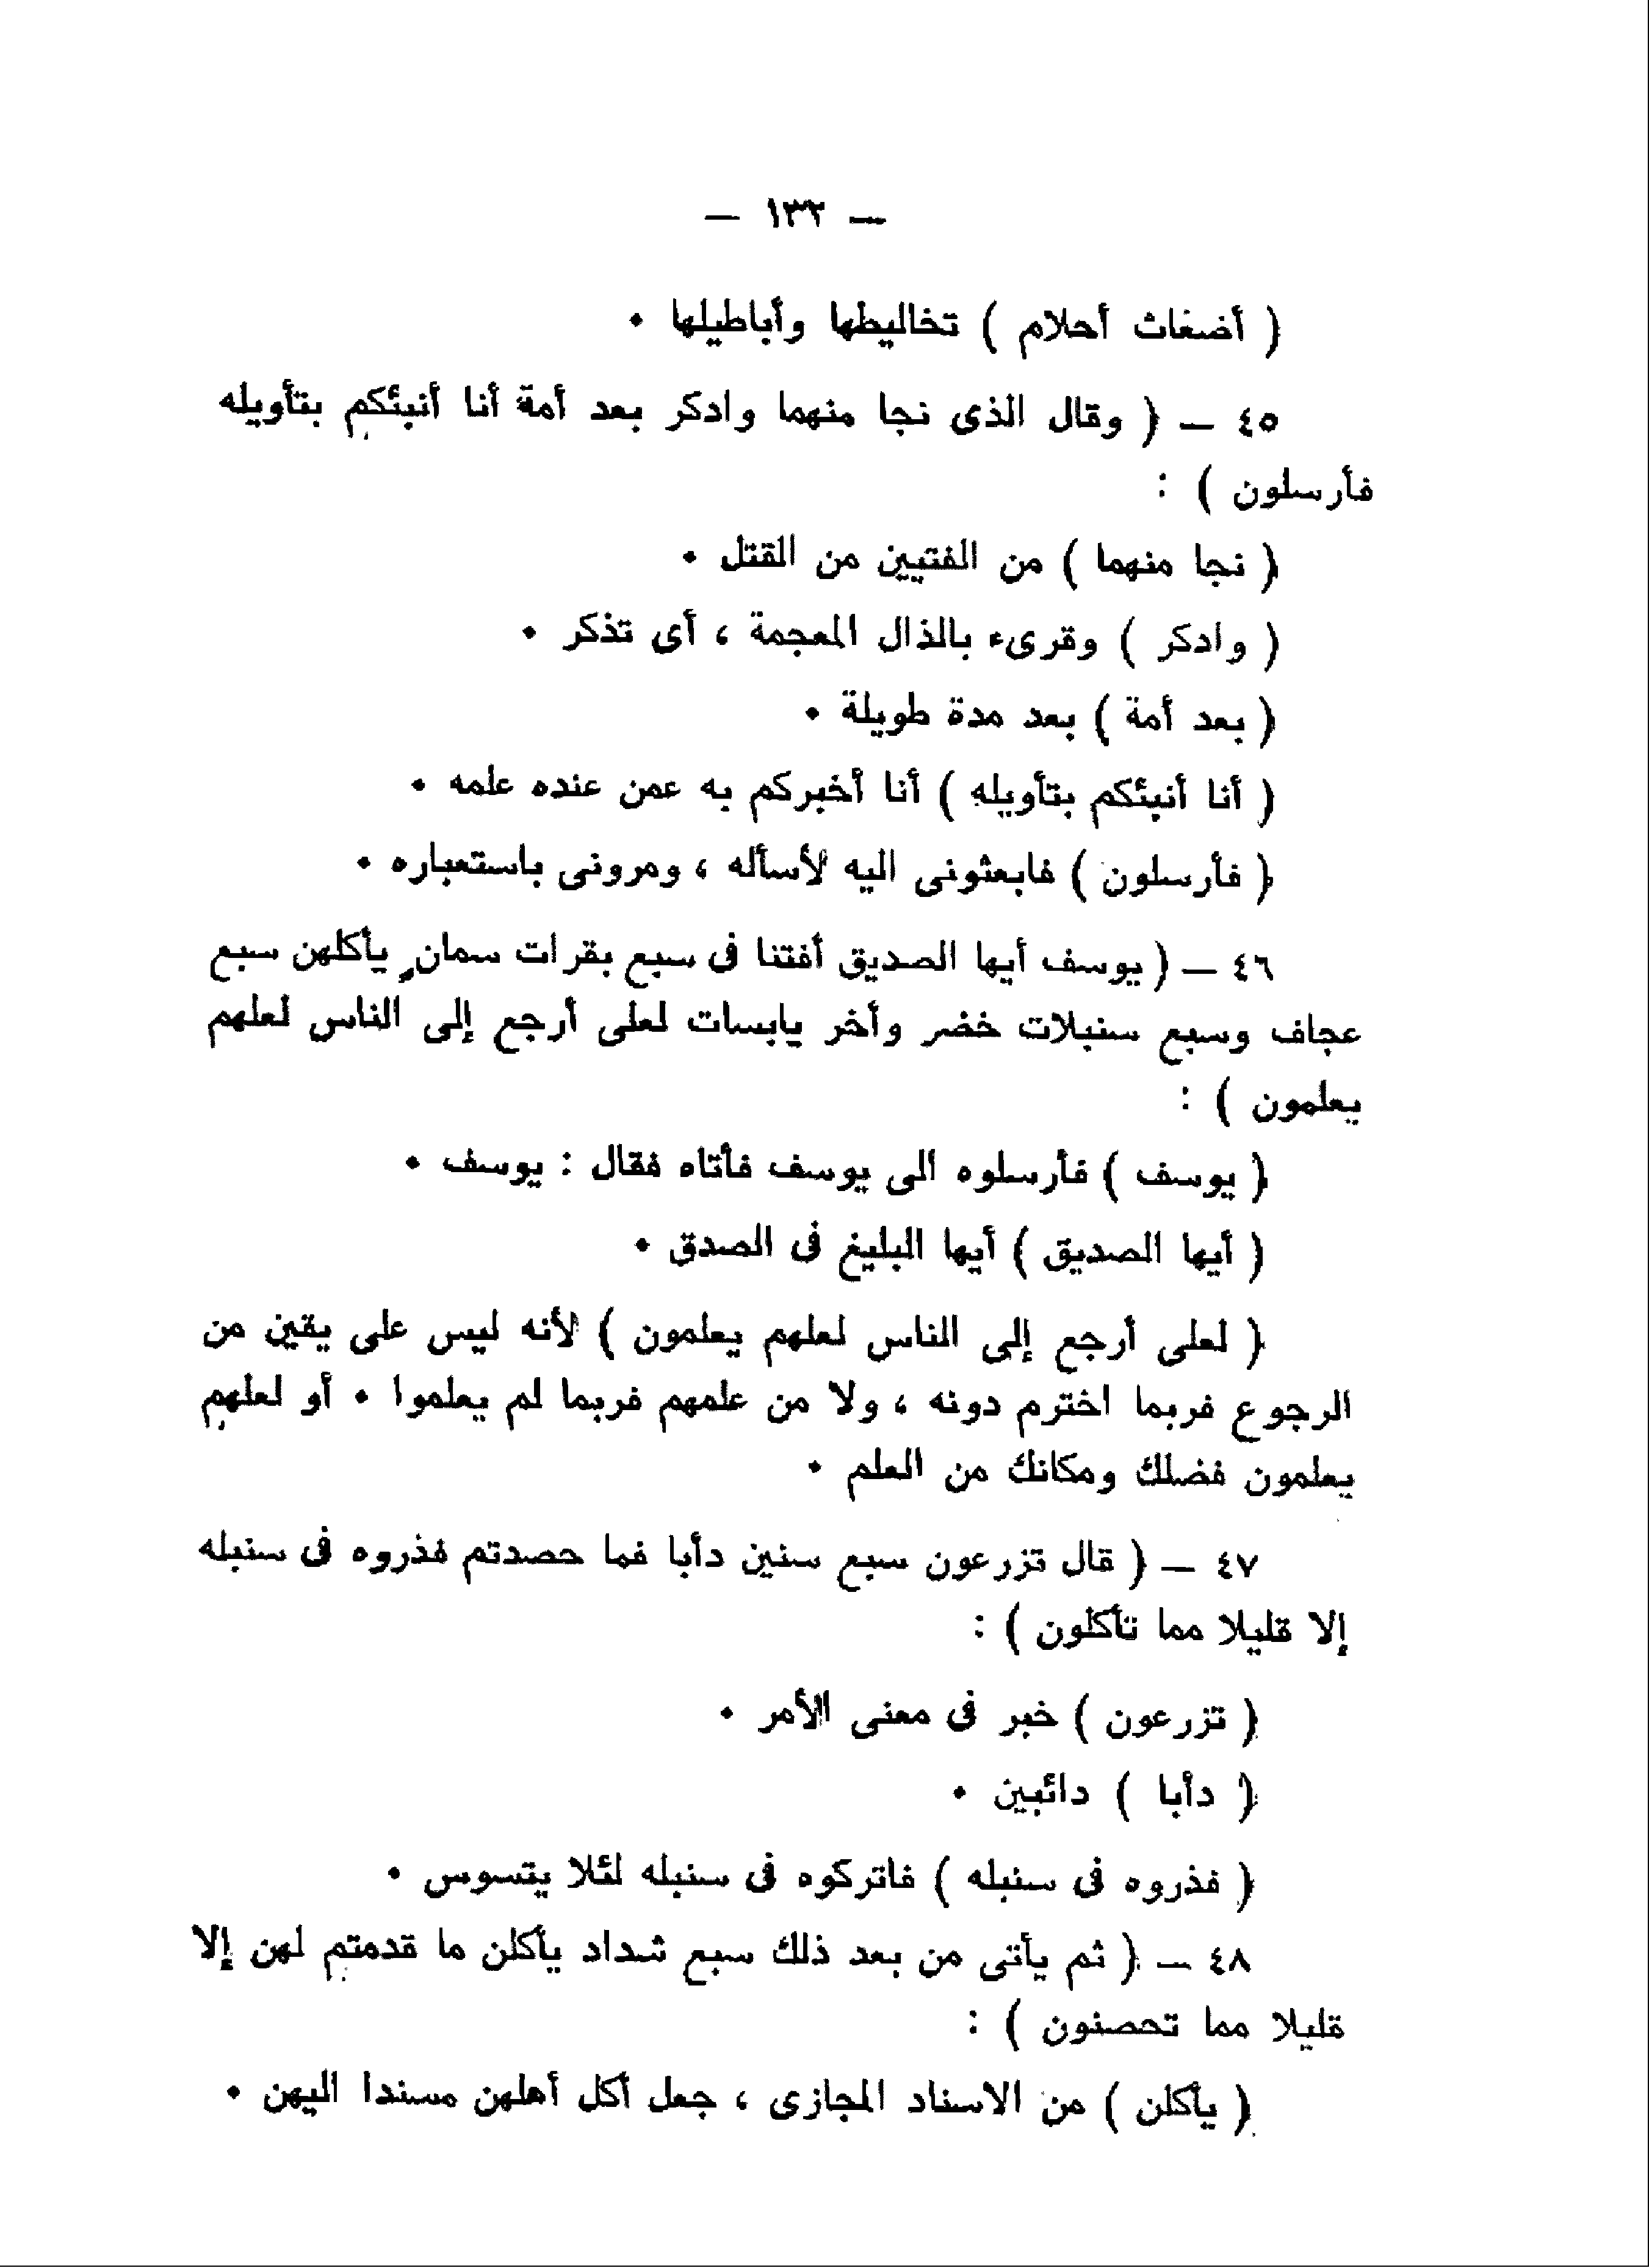 — ١٣٢ —
( أضغاث أحلام ) تخاليطها وأباطيلها .
٤٥ — ( وقال الذى نجا منهما وادكر بعد أمة أنا أنبئكم بتأويله
فأرسلون ) :
( نجا منهما ) من الفتيين من القتل .
( وادكر ) وقرىء بالذال المعجمة ، أى تذكر .
( بعد أمة ) بعد مدة طويلة .
( أنا أنبئكم بتأويله ) أنا أخبركم به عمن عنده علمه .
( فأرسلون ) فابعثونى اليه لأسأله ، ومرونى باستعباره .
٤٦ — ( يوسف أيها الصديق أفتنا فى سبع بقرات سمان يأكلهن سبع
عجاف وسبع سنبلات خضر وأخر يابسات لعلى أرجع إلى الناس لعلهم
يعلمون ) :
( يوسف ) فأرسلوه الى يوسف فأتاه فقال : يوسف .
( أيها الصديق ) أيها البليغ فى الصدق .
( لعلى أرجع إلى الناس لعلهم يعلمون ) لأنه ليس على يقين من
الرجوع فربما اخترم دونه ، ولا من علمهم فربما لم يعلموا . أو لعلهم
يعلمون فضلك ومكانك من العلم .
٤٧ — ( قال تزرعون سبع سنين دأبا فما حصدتم فذروه فى سنبله
إلا قليلا مما تأكلون ) :
( تزرعون ) خبر فى معنى الأمر .
( دأبا ) دائبين .
( فذروه فى سنبله ) فاتركوه فى سنبله لئلا يتسوس .
٤٨ — ( ثم يأتى من بعد ذلك سبع شداد يأكلن ما قدمتم لهن إلا
قليلا مما تحصنون ) :
( يأكلن ) من الاسناد المجازى ، جعل أكل أهلهن مسندا اليهن .